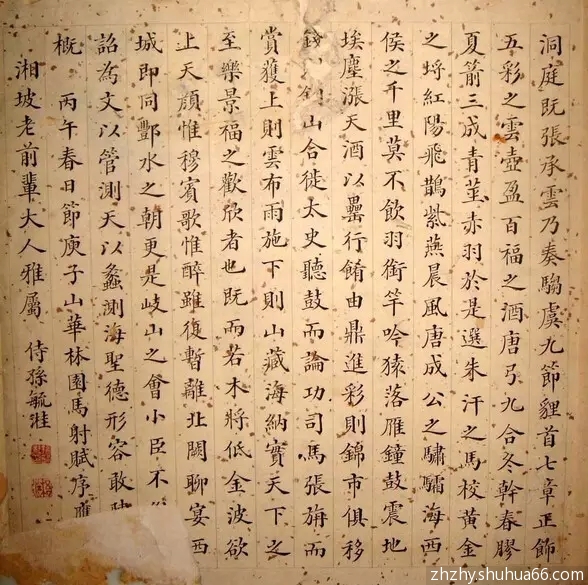 洞庭既張承雲乃奏騶虞九節貍首七章正飾
五彩之雲壺盈百福之酒唐弓九合冬幹春膠
夏箭三成青莖赤羽於是選朱汗之馬校黃金
之埒紅陽飛鵲紫燕晨風唐成公之驌驦海西
侯之千里莫不飲羽銜竿吟猿落雁鐘鼓震地
埃塵漲天酒以罍行餚由鼎進彩則錦市俱移
錢山合徙太史聽鼓而論功司馬張旃而
賞獲上則雲布雨施下則山藏海納實天下之
至樂景福之歡欣者也既而若木將低金波欲
上天顏惟穆賓歌惟醉雖復暫離北闕聊宴西
城即同酆水之朝更是岐山之會小臣不
詔為文以管測天以蠡測海聖德形容敢
概 丙午春日節庾子山華林園馬射賦序應
湘坡老前輩大人雅屬 侍孫毓溎
zhzhyshuhua66.com